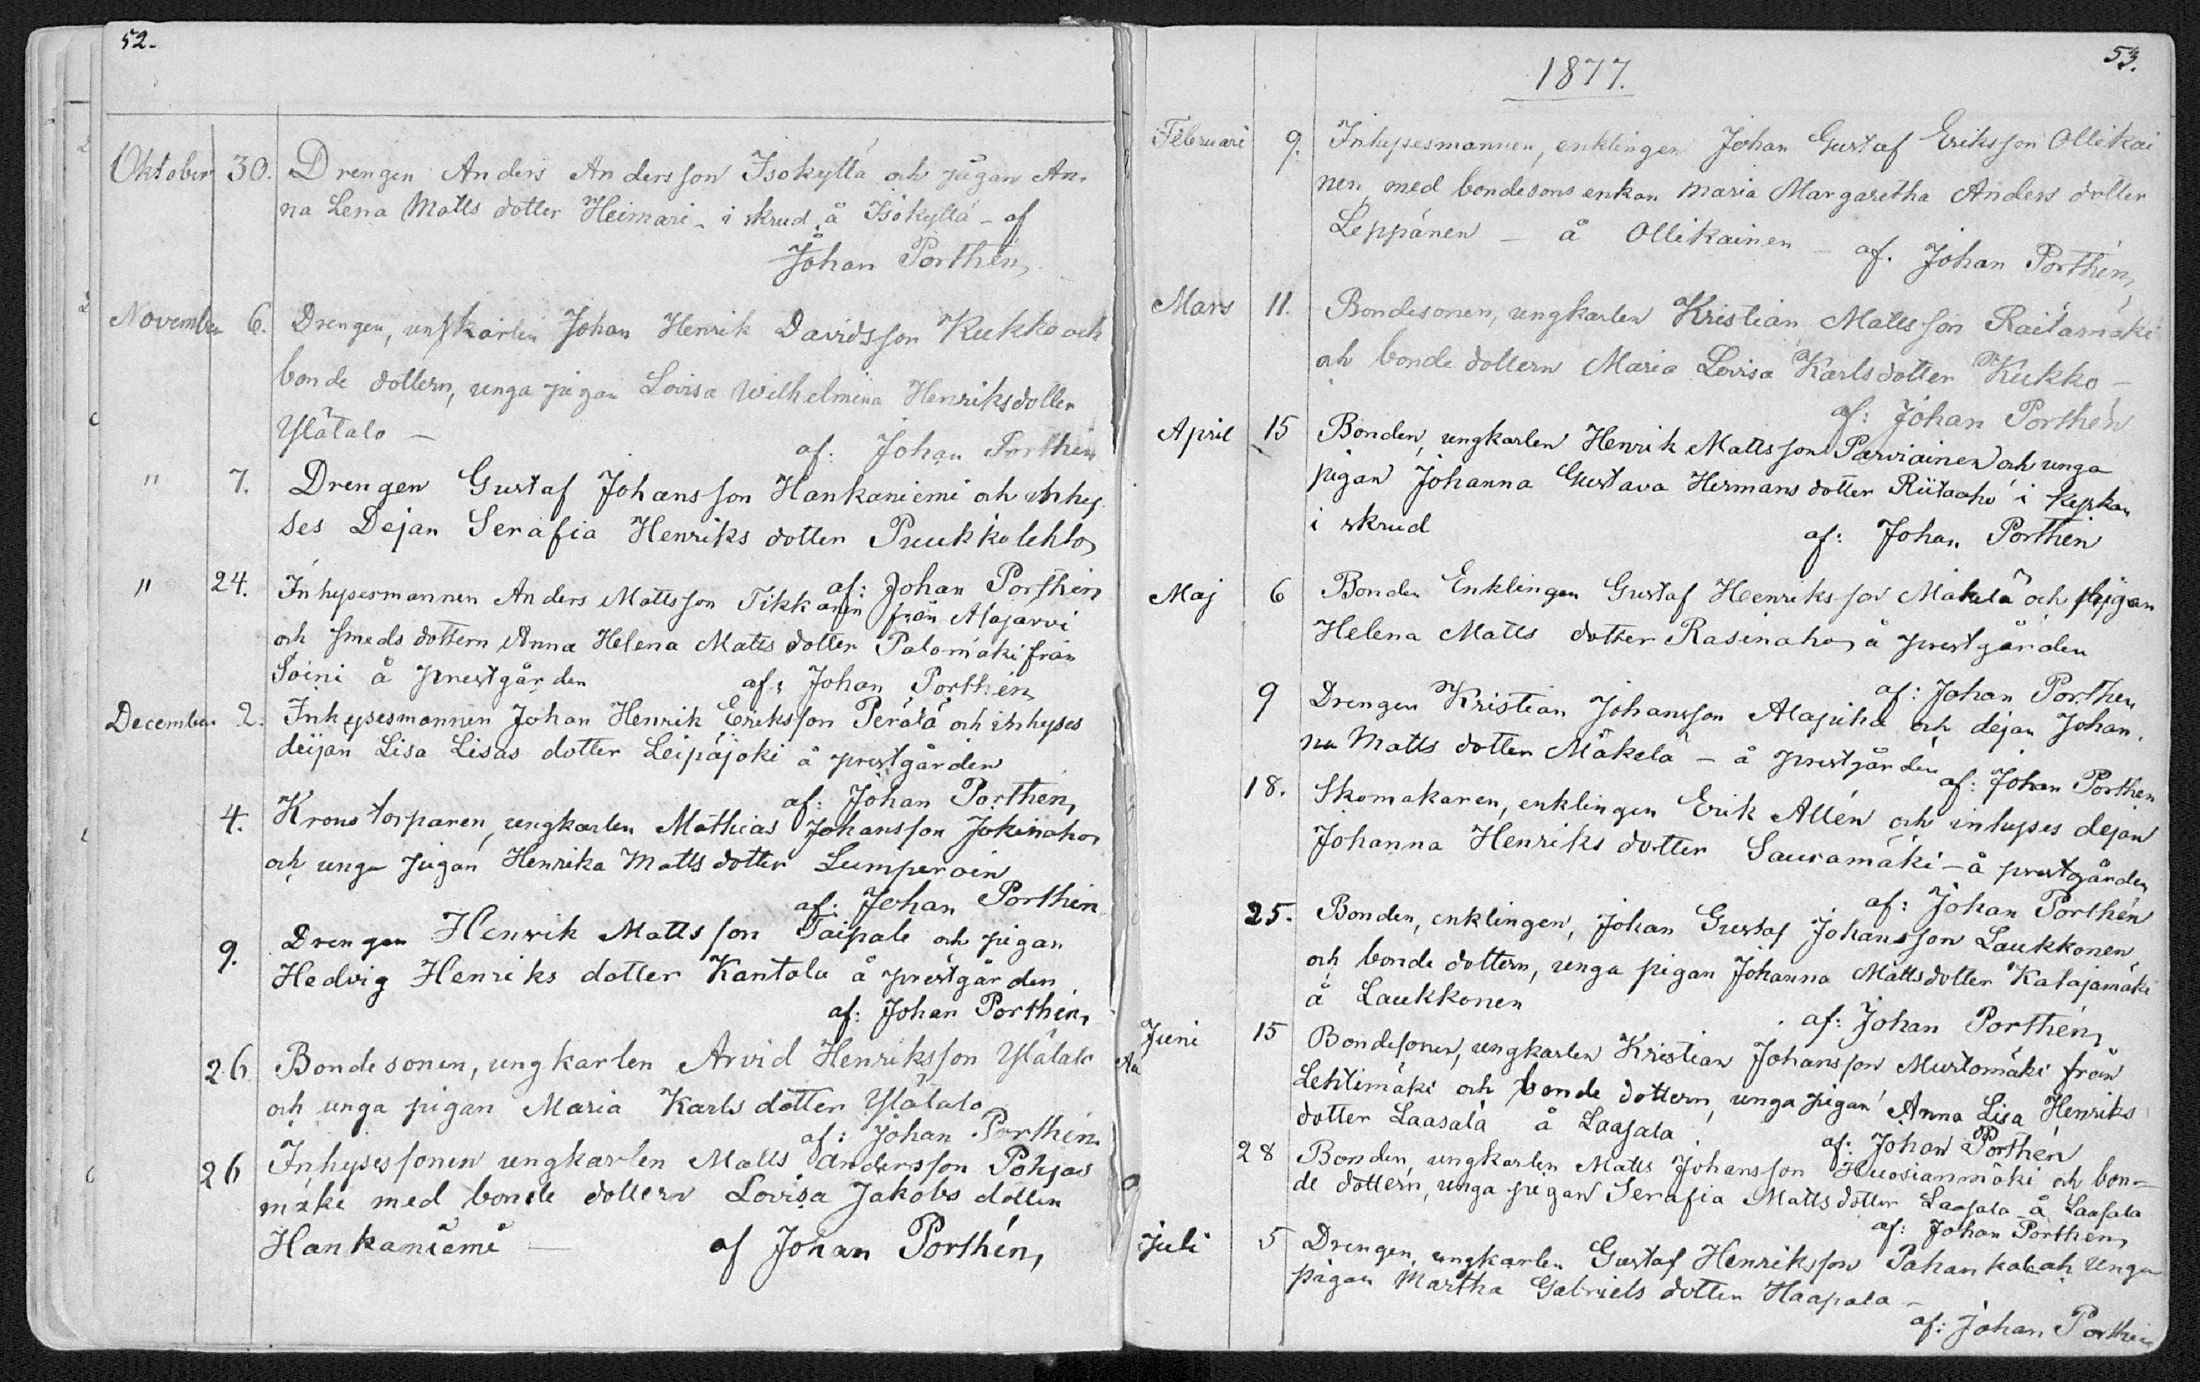 52.
Oktober 30. Drengen Anders Andersson Isokyttä och pigan An-
na Lena Matts dotter Heimari - i skrud å Isokyttä - af
Johan Porthén,
November 6. Drengen, ungkarlen Johan Henrik Davidsson Kukko och
bonde dottern, unga pigan Lovisa Wilhelmina Henriksdotter
Ylätalo -
af: Johan Porthén
" 7. Drengen Gustaf Johansson Hankaniemi och inhy
ses Dejan Serafia Henriks dotter Puukkolehto,
af: Johan Porthén
" 24. Inhysesmannen Anders Mattsson Tikkanen från Alajärvi
och smeds dottern Anna Helena Matts dotter Palomäki från
Soini å prestgården af: Johan Porthén,
December 2. Inhysesmannen Johan Henrik Eriksson Perälä och inhyses
deijan Lisa Lisas dotter Leipäjoki å prestgården
af: Johan Porthén,
4. Krono torparen, ungkarlen Mathias Johansson Jokinaho,
och unga pigan Henrika Matts dotter Lumperoin
af: Johan Porthén
9. Drengen Henrik Mattsson Taipale och pigan
Hedvig Henriks dotter Kantola å prestgården
af: Johan Porthén,
26 Bondesonen, ungkarlen Arvid Henriksson Ylätalo
och unga pigan Maria Karls dotter Ylätalo
af: Johan Porthén.
26 Inhysessonen ungkarlen Matts Andersson Pohjas
mäki med bonde dottern Lovisa Jakobs dotter
Hankaniemi - af Johan Porthén,
53.
1877.
Februari 9. Inhysesmannen, enklingen Johan Gustaf Eriksson Ollikai
nen, med bondesons enkan Maria Margaretha Anders dotter
Leppänen - å Ollikainen - af. Johan Porthén,
Mars 11. Bondesonen, ungkarlen Kristian Mattsson Raitamäki
och bonde dottern Maria Lovisa Karlsdotter Kukko -
af: Johan Porthén
April 15 Bonden, ungkarlen Henrik Mattsson Parviainen och unga
pigan Johanna Gustava Hermans dotter Riitaaho i kyrkan
i skrud af: Johan Porthén
Maj 6 Bonden Enklingen Gustaf Henriksson Mäkelä och pigan
Helena Matts dotter Rasinaho, å prestgården
af: Johan Porthén
9 Drengen Kristian Johansson Alapiha och dejan Johan.
na Matts dotter Mäkelä - å prestgården af: Johan Porthén
18. Skomakaren, enklingen Erik Allén och inhyses dejan
Johanna Henriks dotter Sauramäki - å prestgården
af: Johan Porthén
25. Bonden, enklingen, Johan Gustaf Johansson Laukkonen,
och bonde dottern, unga pigan Johanna Mattsdotter Katajamäki
å Laukkonen
af: Johan Porthén,
Juni 15 Bondesonen, ungkarlen Kristian Johansson Murtomäki från
Lehtimäki och bonde dottern, unga pigan Anna Lisa Henriks
dotter Laasala å Laasala
af: Johan Porthén
28 Bonden, ungkarlen Matts Johansson Huosianmäki och bon-
de dottern, unga pigan Serafia Matts dotter Laasala å Laasala
af: Johan Porthén,
Juli 5 Drengen, ungkarlen Gustaf Henriksson Pahankala och unga
pigan Martha Gabriels dotter Haapala -
af: Johan Porthén